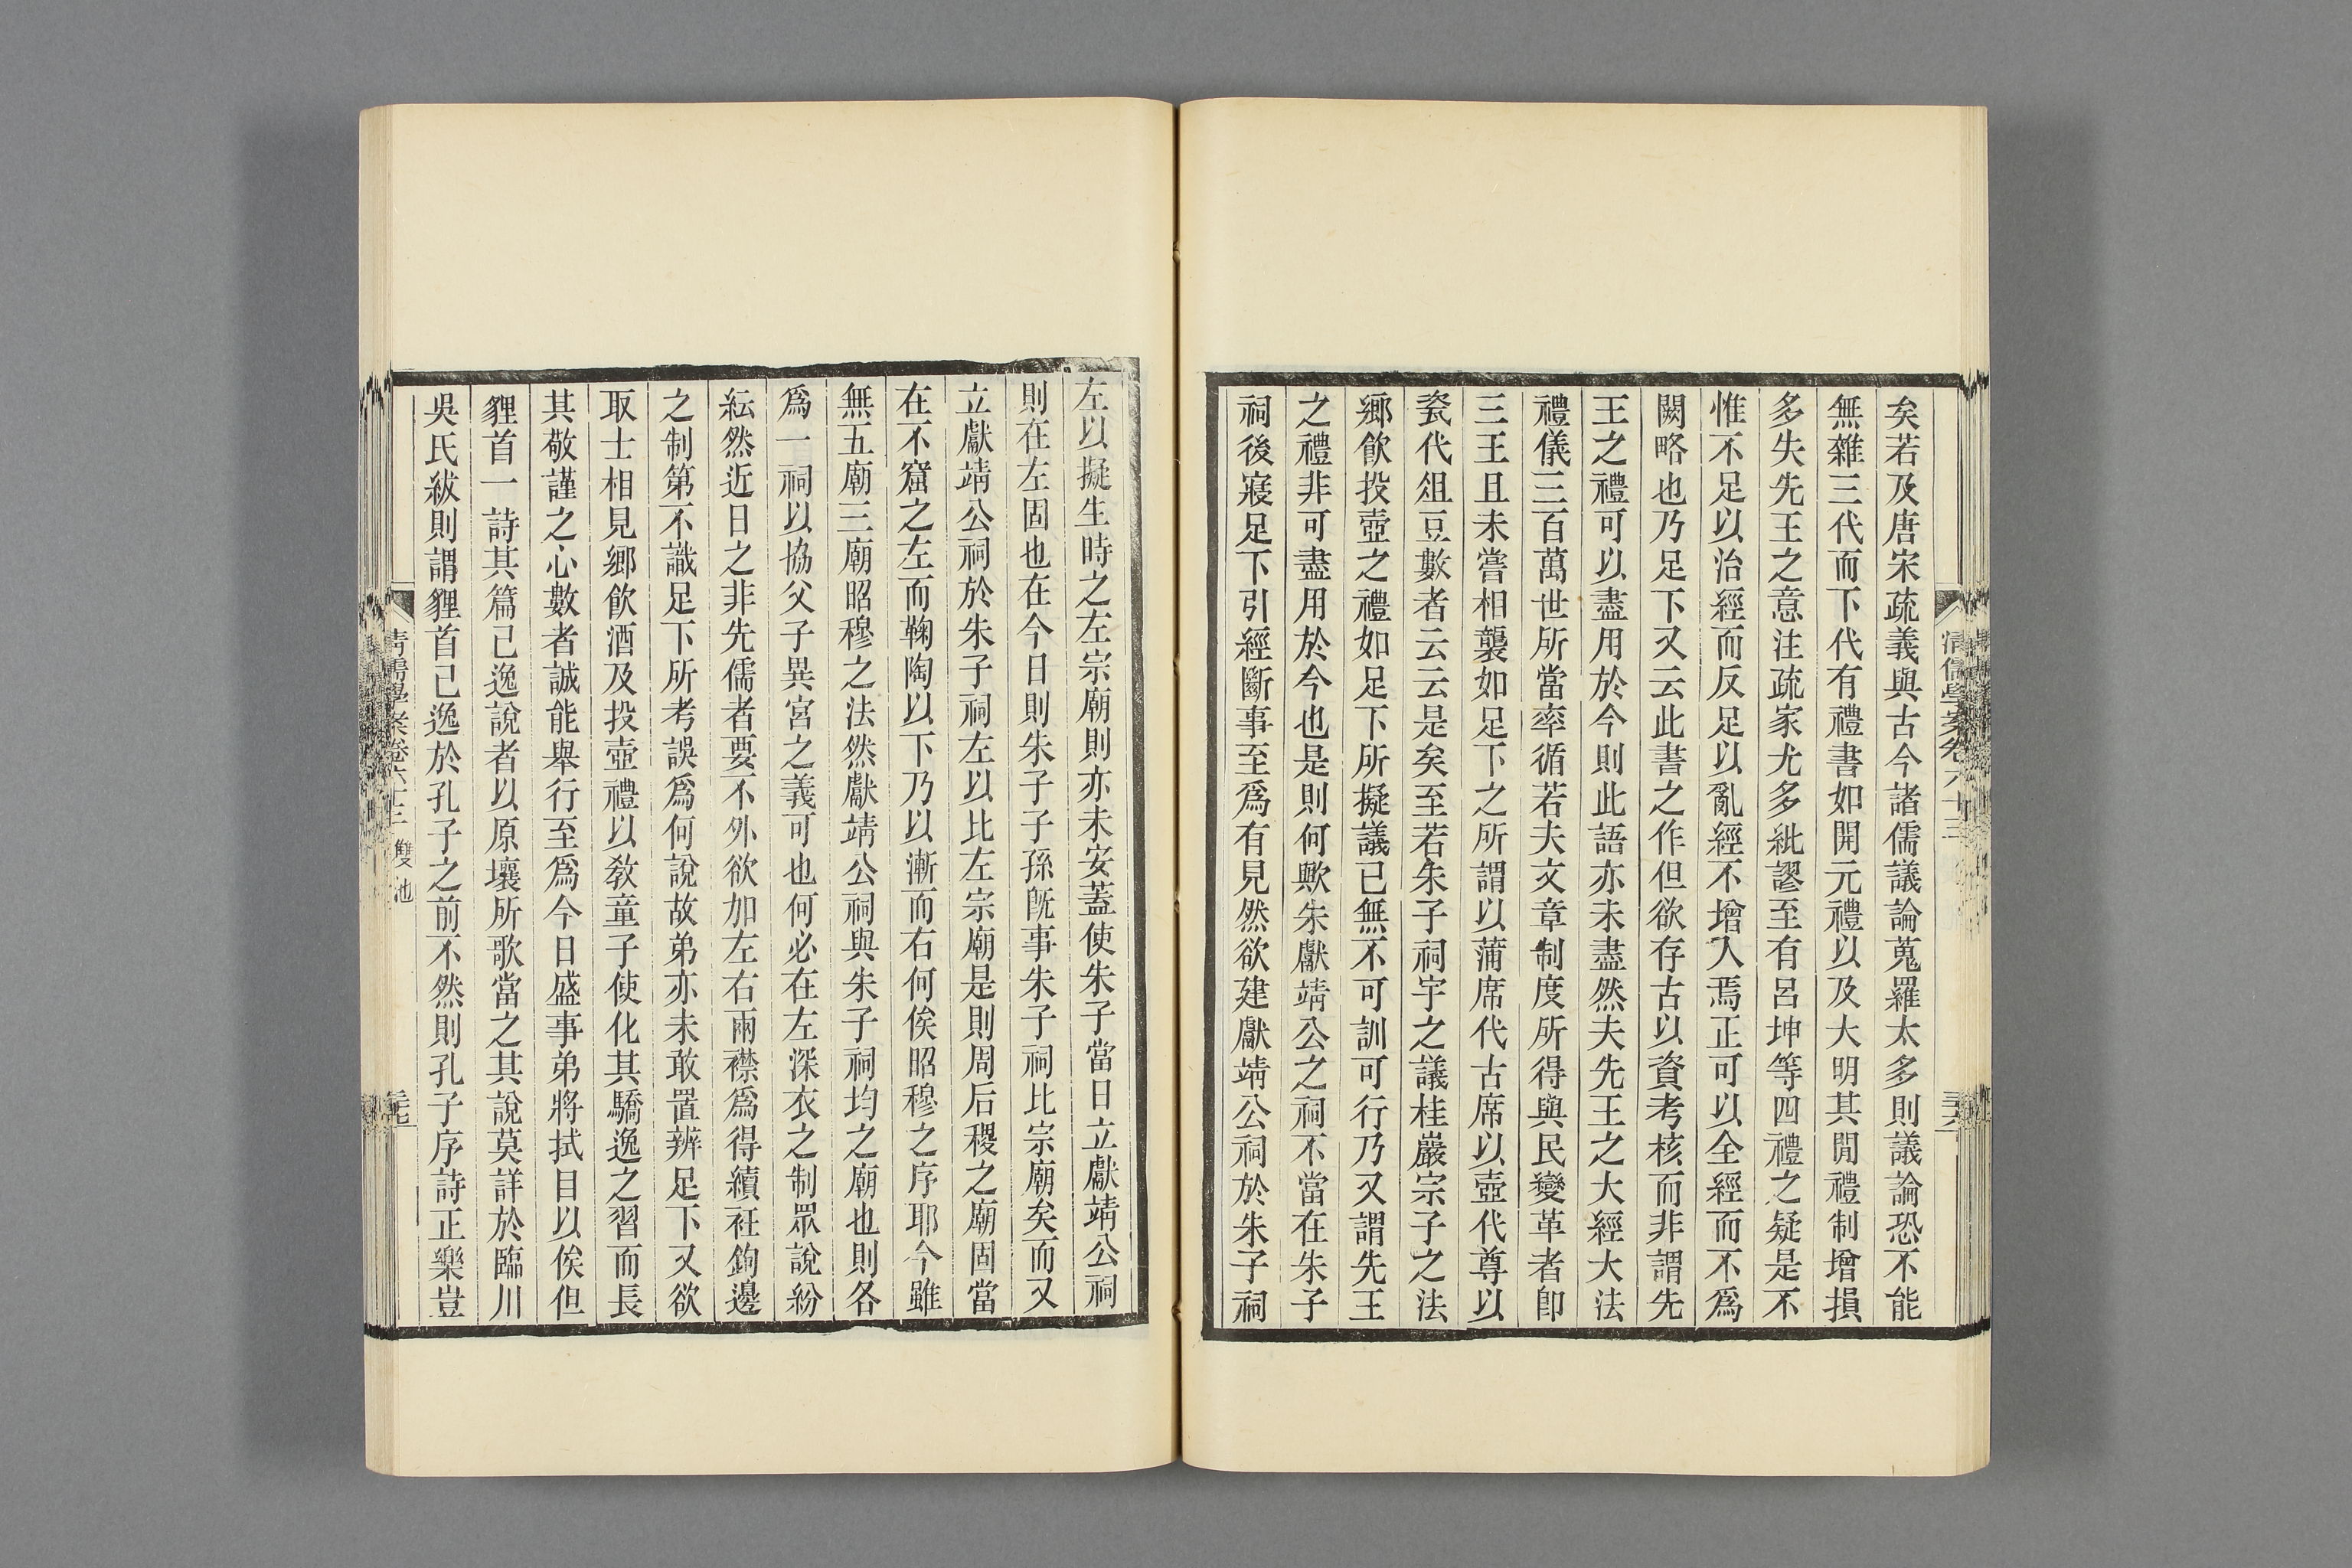 清儒學案卷六十三
矣若及唐宋疏義與古今諸儒議論蒐羅太多則議論恐不能
無雜三代而下代有禮書如開元禮以及大明其閒禮制增損
多失先王之意注疏家尤多紕謬至有呂坤等四禮之疑是不
惟不足以治經而反足以亂經不增入焉正可以全經而不爲
闕略也乃足下又云此書之作但欲存古以資考核而非謂先
王之禮可以盡用於今則此語亦未盡然夫先王之大經大法
禮儀三百萬世所當率循若夫文章制度所得與民變革者卽
三王且未嘗相襲如足下之所謂以蒲席代古席以壺代尊以
瓷代俎豆數者云云是矣至若朱子祠宇之議桂巖宗子之法
鄉飮投壺之禮如足下所擬議已無不可訓可行乃又謂先王
之禮非可盡用於今也是則何歟朱獻靖公之祠不當在朱子
祠後寢足下引經斷事至爲有見然欲建獻靖公祠於朱子祠
左以擬生時之左宗廟則亦未安蓋使朱子當日立獻靖公祠
則在左固也在今日則朱子子孫旣事朱子祠比宗廟矣而又
立獻靖公祠於朱子祠左以比左宗廟是則周后稷之廟固當
在不窋之左而鞠陶以下乃以漸而右何俟昭穆之序耶今雖
無五廟三廟昭穆之法然獻靖公祠與朱子祠均之廟也則各
爲一祠以協父子異宮之義可也何必在左深衣之制眾說紛
紜然近日之非先儒者要不外欲加左右兩襟爲得續衽鉤邊
之制第不識足下所考誤爲何說故弟亦未敢置辨足下又欲
取士相見鄉飮酒及投壺禮以敎童子使化其驕逸之習而長
其敬謹之心數者誠能舉行至爲今日盛事弟將拭目以俟但
貍首一詩其篇已逸說者以原壤所歌當之其說莫詳於臨川
吳氏紱則謂貍首已逸於孔子之前不然則孔子序詩正樂豈
清儒學案卷六十三 雙池